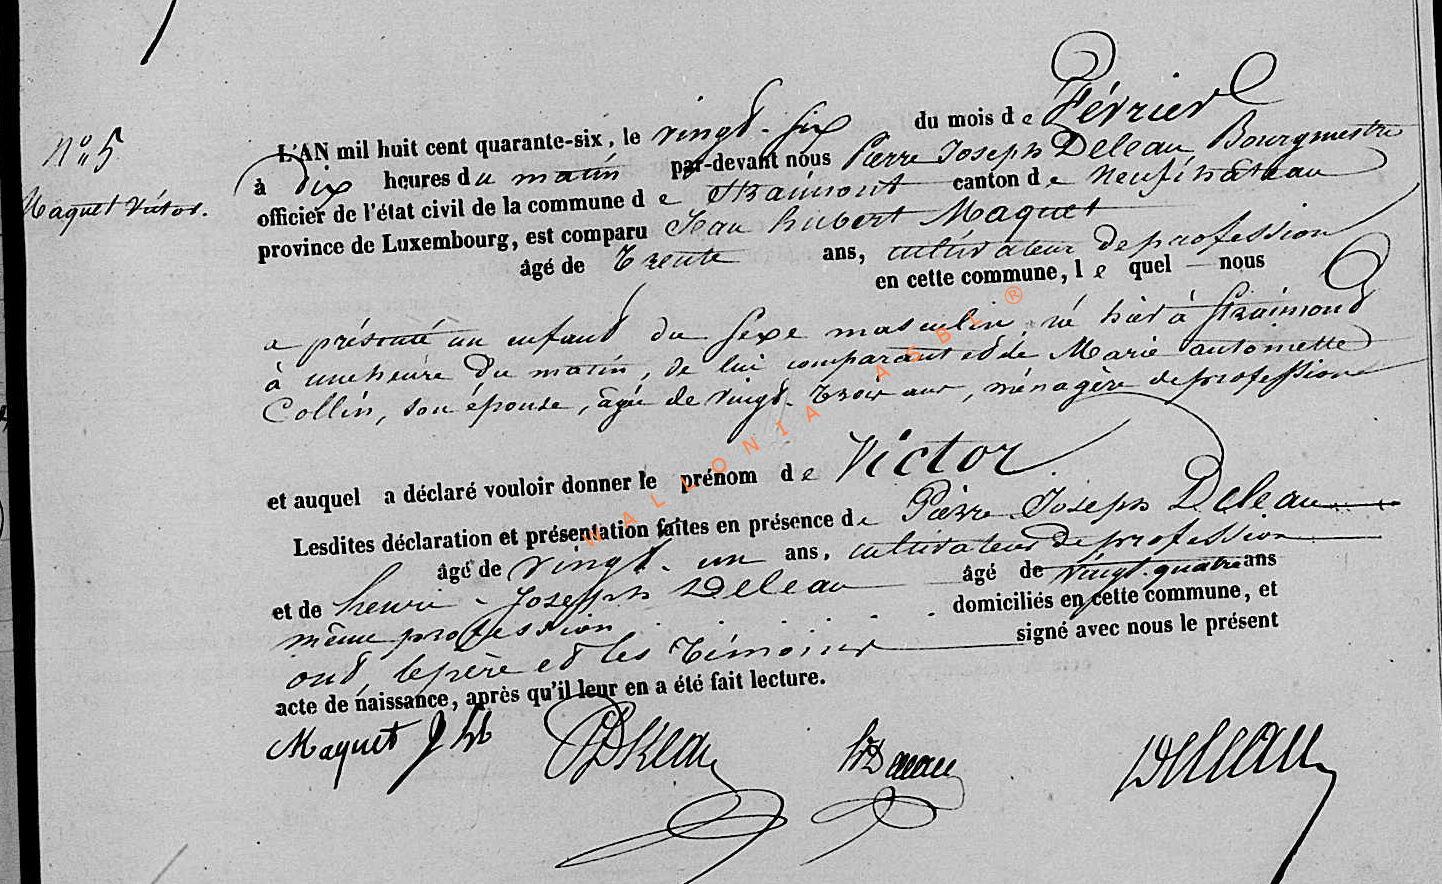 N° 5
Maquet Victor.
L'AN mil huit cent quarante-six, le vingt-six du mois de Février
à dix heures du matin par-devant nous Pierre Joseph Deleau Bourgmestre
officier de l'état civil de la commune de Straimont canton de Neufchâteau
province de Luxembourg, est comparu Jean hubert Maquet
âgé de Trente ans, cultivateur de profession
en cette commune, le quel nous
a présenté un enfant du sexe masculin, né hier à Straimont
à une heure du matin, de lui comparant et de Marie antoinette
Collin, son épouse, âgée de vingt-trois ans, ménagère de profession
et auquel a déclaré vouloir donner le prénom de Victor.
Lesdites déclaration et présentation faites en présence de Pierre Joseph Deleau
âgé de vingt-un ans, cultivateur de profession
et de henri-Joseph Deleau âgé de vingt-quatre ans
même profession domiciliés en cette commune, et
ont, le père et les témoins signé avec nous le présent
acte de naissance, après qu'il leur en a été fait lecture.
Maquet J hb PJDeleau hJDeleau Deleau
WALLONIA ASBL ®